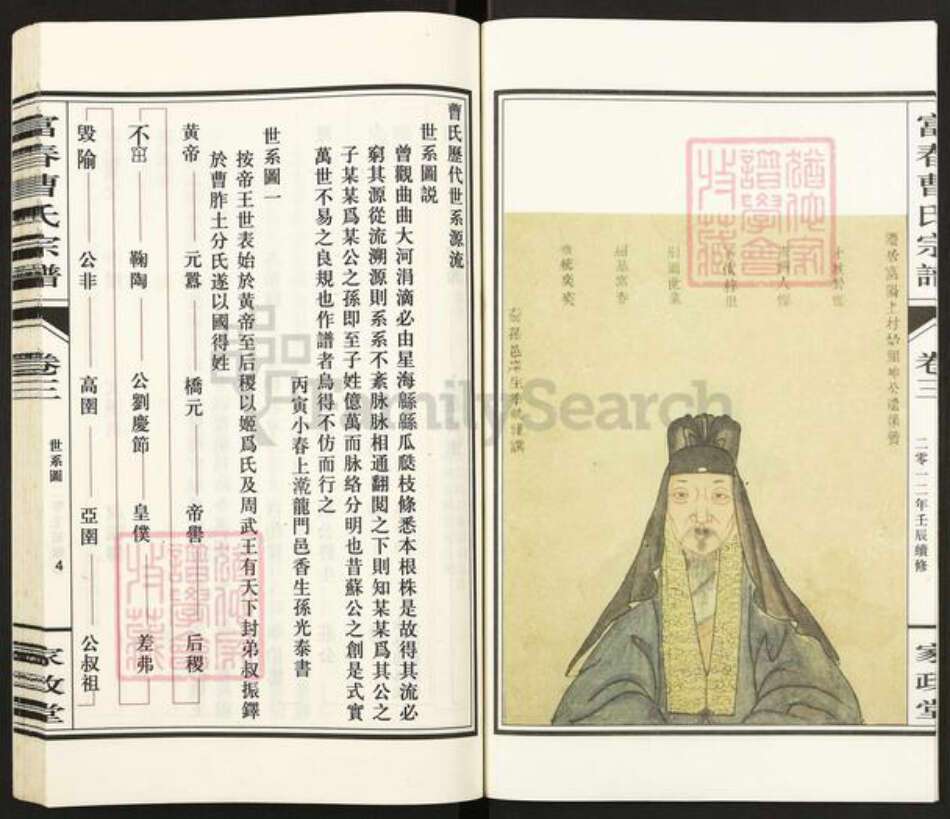 富春曹氏宗譜
卷三
二零一二年壬辰續修
家政堂
猶他家譜學會收藏
曹氏歷代世系源流
世系圖説
曾觀曲曲大河涓滴必由星海緜緜瓜瓞枝條悉本根株是故得其流必
窮其源從流溯源則系系不紊脉脉相通翻閲之下則知某某爲其公之
子某某爲某公之孫即至子姓億萬而脉絡分明也昔蘇公之創是式實
萬世不易之良規也作譜者烏得不仿而行之
丙寅小春上澣龍門邑香生孫光泰書
世系圖一
按帝王世表始於黄帝至后稷以姬爲氏及周武王有天下封弟叔振鐸
於曹胙土分氏遂以國得姓
黄帝 元囂 橋元 帝嚳 后稷
不窋 鞠陶 公劉慶節 皇僕 差弗
毀隃 公非 高圉 亞圉 公叔祖
富春曹氏宗譜
卷三
世系圖
4
家政堂
猶他家譜學會收藏
FamilySearch